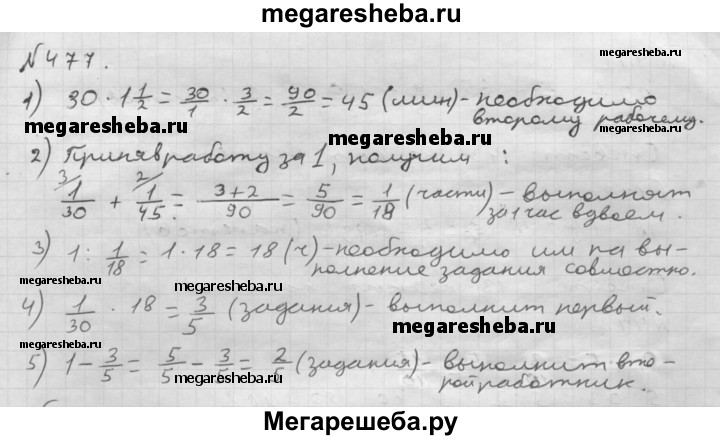 megaresheba.ru
№477.
megaresheba.ru
1) 30 · 1 1/2 = 30/1 · 3/2 = 90/2 = 45 (мин) - необходимо
второму рабочему.
megaresheba.ru
megaresheba.ru
2) Приняв работу за 1, получим :
1/30 (3 + 1/45 (2 = 3+2/90 = 5/90 = 1/18 (части) - выполнят
за 1 час вдвоем.
megaresheba.ru
3) 1 : 1/18 = 1 · 18 = 18 (ч) - необходимо им на вы-
полнение задания совмостно.
megaresheba.ru
4) 1/30 · 18 = 3/5 (задания) - выполнит первый.
megaresheba.ru
megaresheba.ru
5) 1 - 3/5 = 5/5 - 3/5 = 2/5 (задания) - выполнит вто-
рой работник.
megaresheba.ru
Мегарешеба.ру